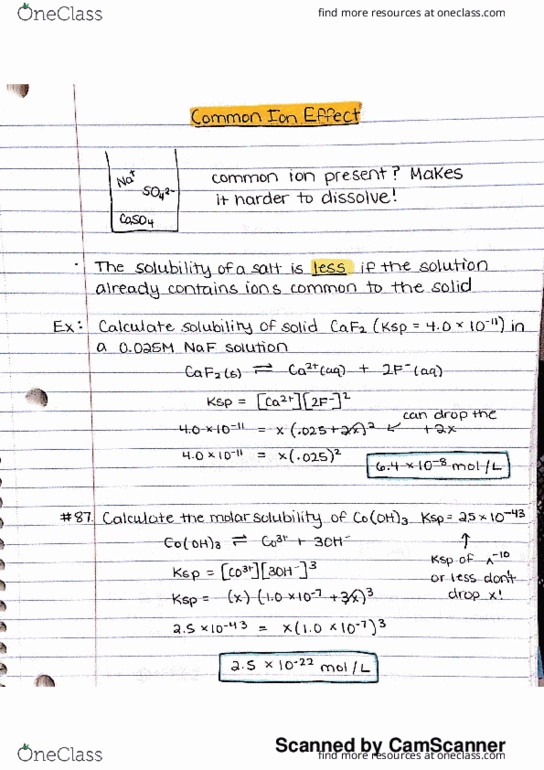 OneClass
find more resources at oneclass.com
Common Ion Effect
Na⁺
SO₄²⁻
CaSO₄
common ion present? Makes
it harder to dissolve!
· The solubility of a salt is less if the solution
already contains ions common to the solid
Ex: Calculate solubility of solid CaF₂ (Ksp = 4.0 × 10⁻¹¹) in
a 0.025M NaF solution
CaF₂(s) ⇌ Ca²⁺(aq) + 2F⁻(aq)
Ksp = [Ca²⁺][2F⁻]²
4.0×10⁻¹¹ = x(.025+2x)² ↙ can drop the
+2x
4.0×10⁻¹¹ = x(.025)²
6.4 × 10⁻⁸ mol/L
#87. Calculate the molar solubility of Co(OH)₃ Ksp = 2.5×10⁻⁴³
Co(OH)₃ ⇌ Co³⁺ + 3OH⁻
Ksp = [Co³⁺][3OH⁻]³
Ksp = (x)(1.0×10⁻⁷+3x)³
2.5×10⁻⁴³ = x(1.0×10⁻⁷)³
2.5 × 10⁻²² mol/L
↑
Ksp of ^⁻¹⁰
or less don't
drop x!
Scanned by CamScanner
OneClass
find more resources at oneclass.com